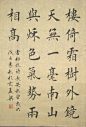 樓倚霜樹外鏡
天無一毫南山
與秌色氣勢兩
相高